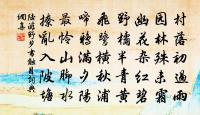 村落初過雨
園林殊未霜
幽花雜紅碧
野橘半青黃
飛鷺橫秋浦
啼鴉滿夕陽
最憐山腳水
撩亂入陂塘
陸游野步書觸目詞典
網集